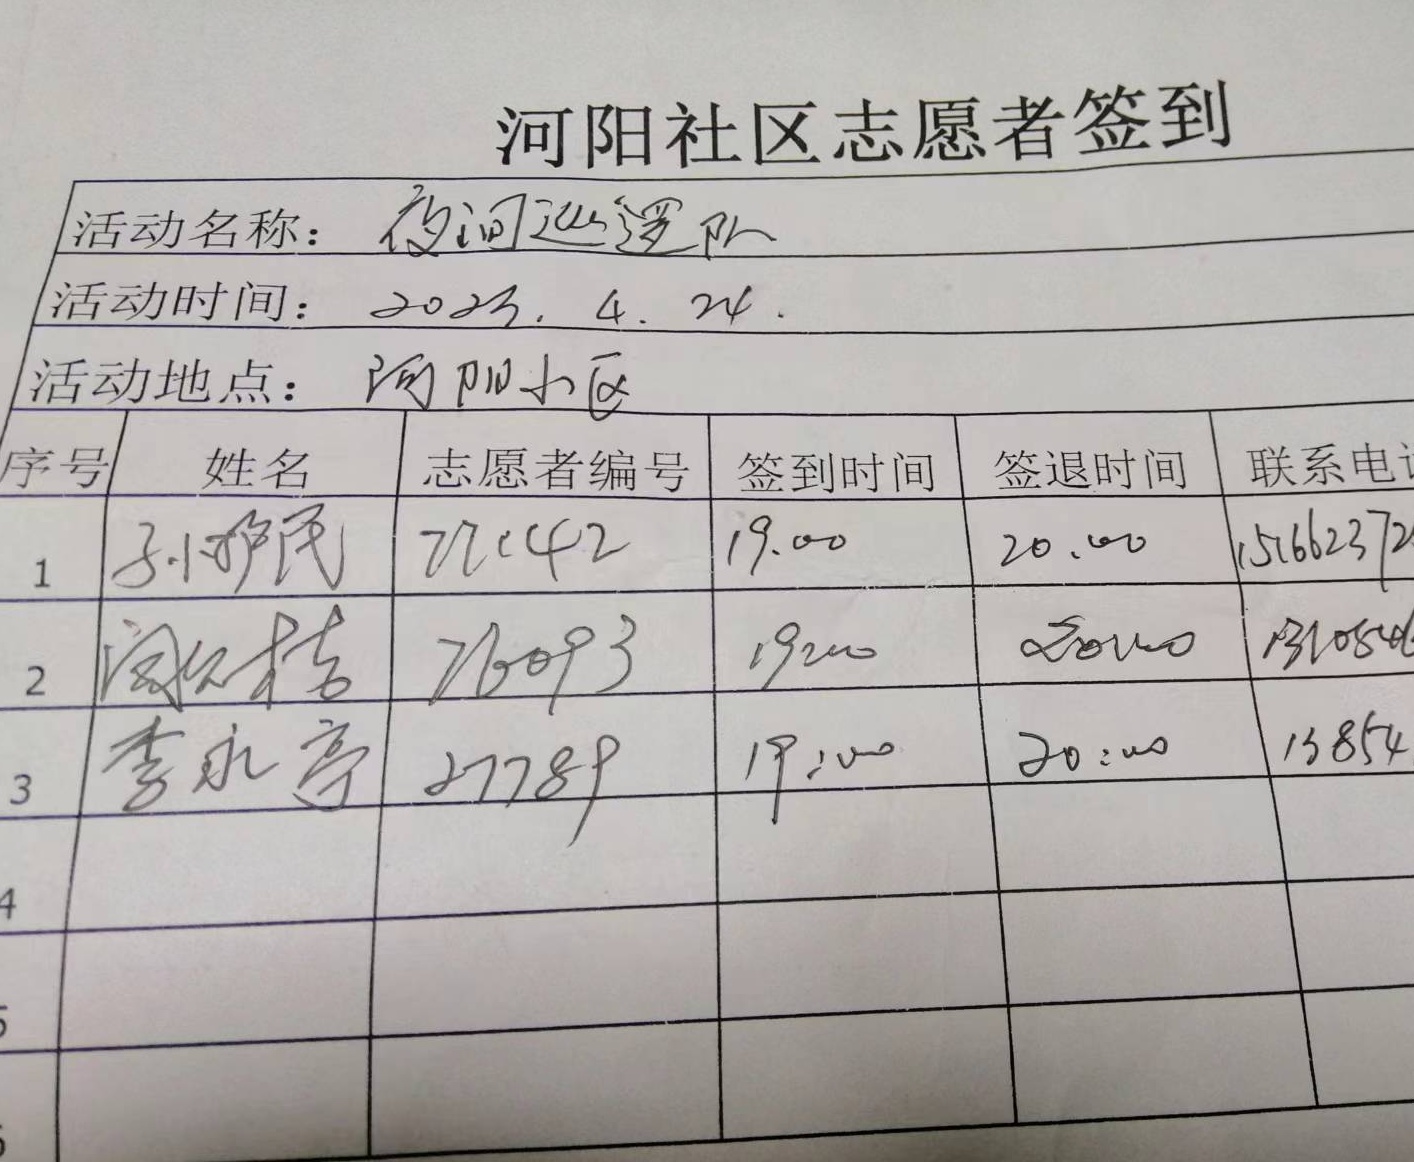 河阳社区志愿者签到
活动名称： 夜间巡逻队
活动时间： 2023. 4. 24.
活动地点： 河阳小区
序号 姓名 志愿者编号 签到时间 签退时间 联系电
1 民 19.00 20.00 15166237
2 76093 19:00 20:00
3 李永亭 27789 19:00 20:00 13854
4
5
6